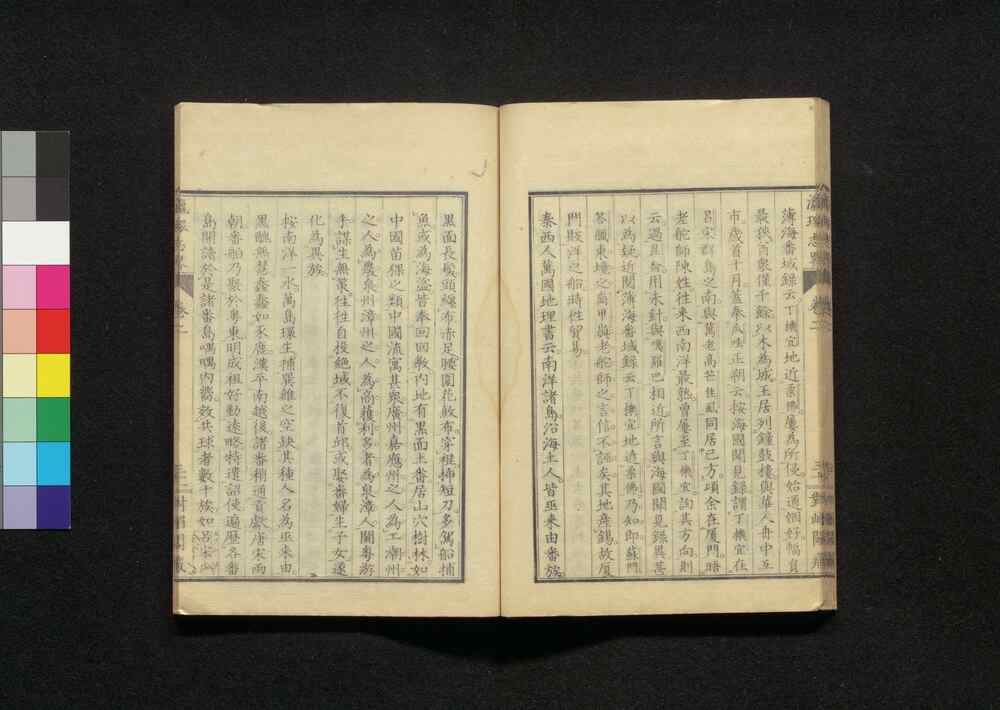 薄海番域錄云丁機宜地近柔佛屢為所侵始通姻好幅員
最狹百衆僅千餘以木為城王居列鐘鼓樓與華人舟中互
市歲首十月蓋奉瓜哇正朔云按海國聞見錄謂丁機宜在
呂宋群島之南與萬老高芒佳虱同居巳方頃余在厦門晤
老舵師陳姓徃来西南洋最熟曾屢至丁機宜詢其方向則
云過昆侖用未針與噶羅巴相近所言與海國聞見錄異甚
以為疑近閱薄海番域錄云丁機宜地近柔佛乃知即蘇門
答臘東境之裔甲與老舵師之言信不誣矣其地產錫故厦
門販洋之船時徃貿易
泰西人萬國地理書云南洋諸島沿海土人皆巫来由番族
黑面長鬈頭纏布赤足腰圍花敞布穿裩挿短刀多駕船捕
魚或為海盜皆奉回回教内地有黑面土番居山穴樹林如
中國苗猓之類中國流寓其衆廣州嘉應州之人為工潮州
之人為農泉州漳州之人為商獲利多者為泉漳人閩粤游
手謀生無策徃徃自投絕域不復首邱或娶番婦生子女遂
化為異族
按南洋一水萬島環生補巽維之空缺其種人名為巫来由
黑醜無慧蠢蠢如豕鹿漢平南越後諸番稍通貢獻唐宋而
朝番舶乃聚於粤東明成祖好勤遠略特遣詔使遍歷各番
島開諸於是諸番島喁喁内嚮效共球者數十族如呂宋
瀛環志畧
卷二